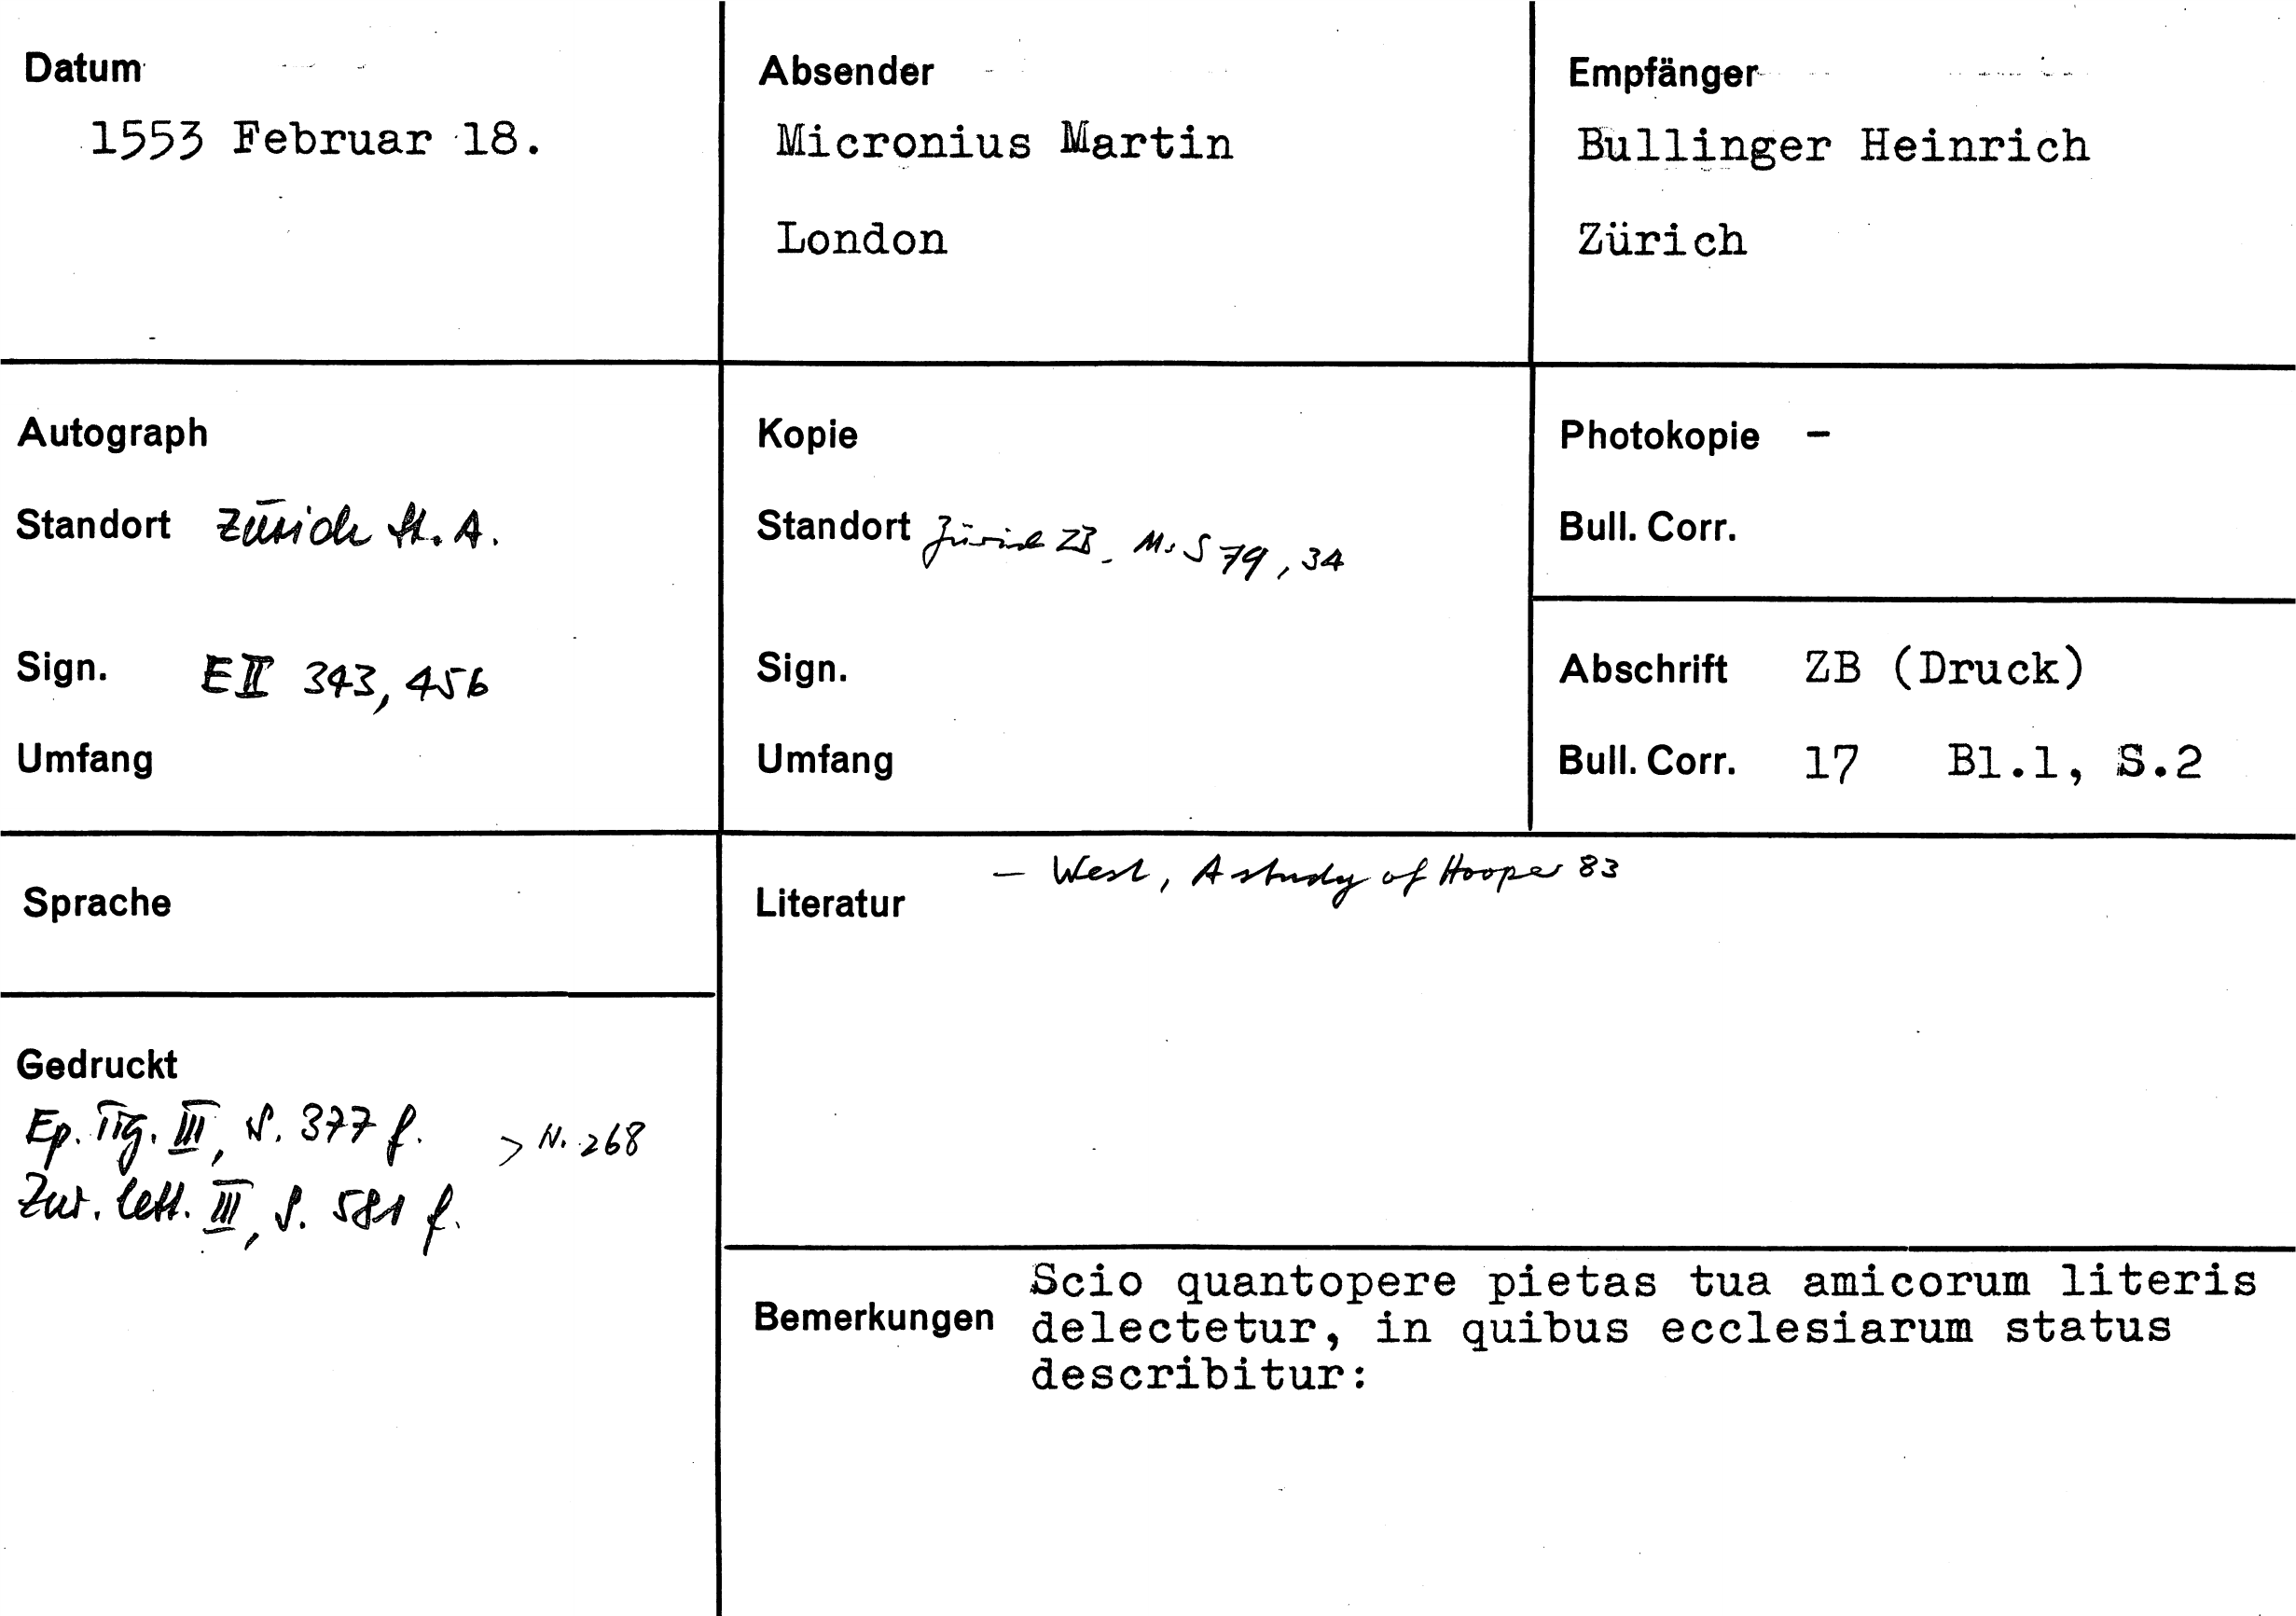 Datum
1553 Februar 18.
Absender
Micronius Martin
London
Empfänger
Bullinger Heinrich
Zürich
Autograph
Standort Zürich St. A.
Sign. E II 343, 456
Umfang
Kopie
Standort Zürich ZB - Ms S 79, 34
Sign.
Umfang
Photokopie -
Bull. Corr.
Abschrift ZB (Druck)
Bull. Corr. 17 Bl.1, S.2
Sprache
Gedruckt
Ep. Tig. III, S. 377 f. > N. 268
Zur. lett. III, S. 581 f.
- West, A study of Hooper 83
Literatur
Bemerkungen
Scio quantopere pietas tua amicorum literis
delectetur, in quibus ecclesiarum status
describitur: